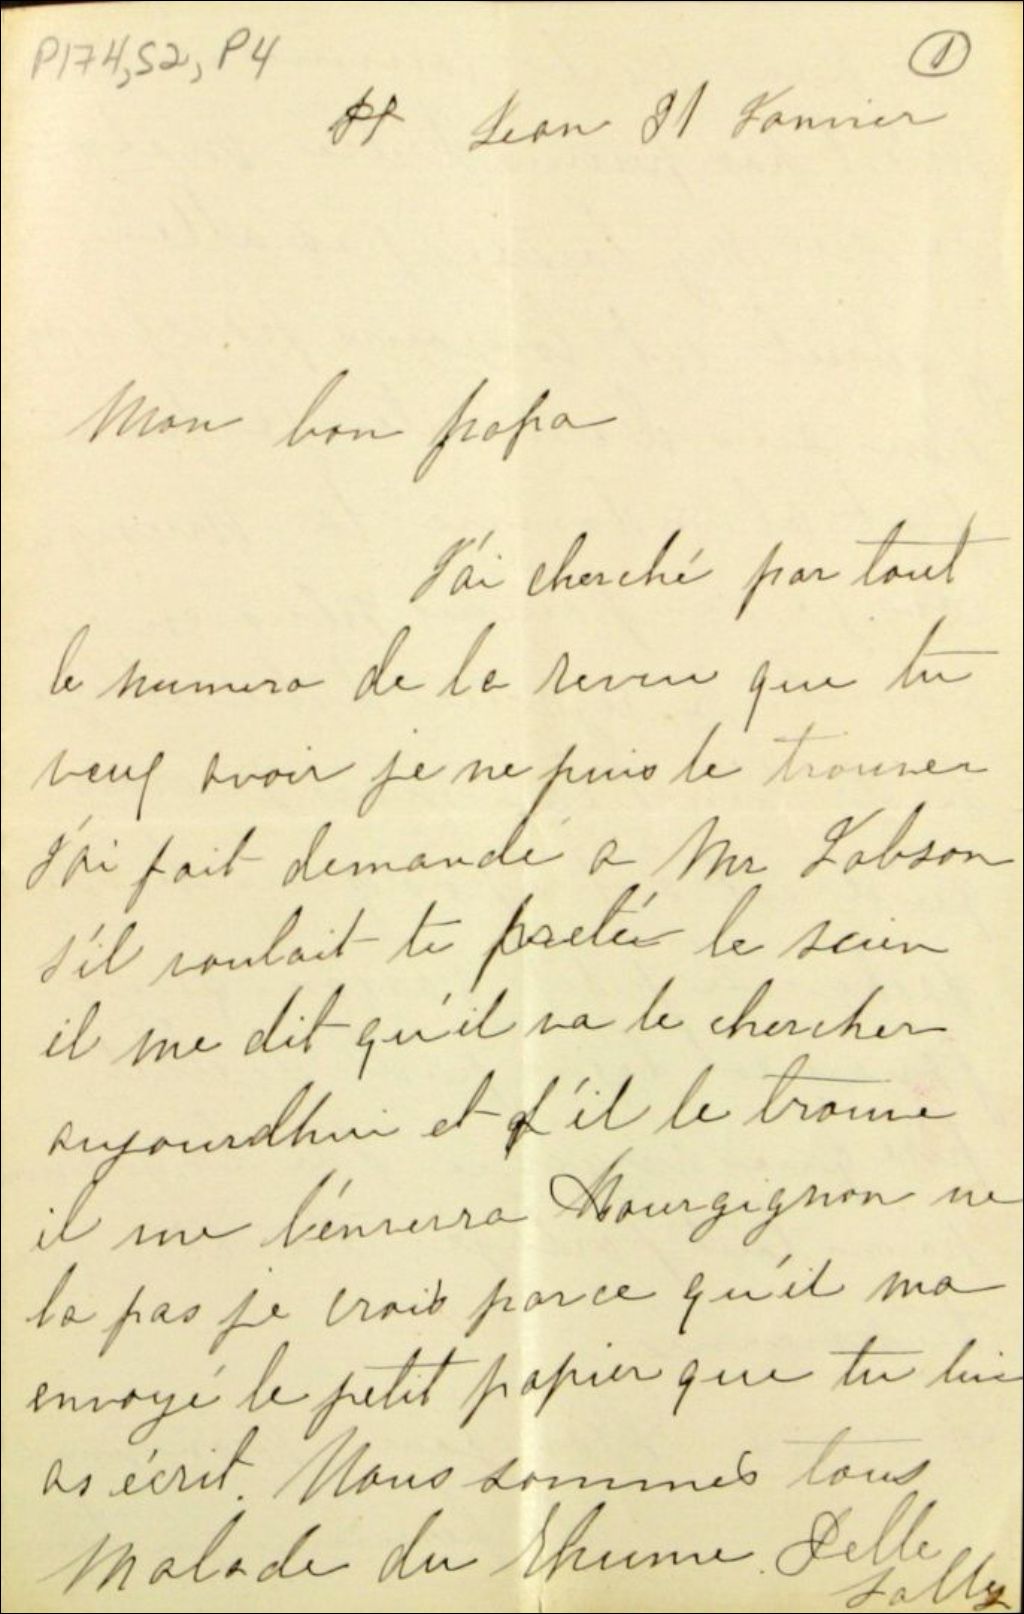 P174,S2,P4
1
St Jean 31 Janvier
Mon bon papa
J'ai cherché par tout
le numero de la revue que tu
veux avoir je ne puis le trouver
J'ai fait demandé a Mr Jobson
s'il voulait te pretér le scien
il me dit qu'il va le chercher
aujourdhui et s'il le trouve
il me l'énverra Bourgignon ne
la pas je crois parce qu'il ma
envoyé le petit papier que tu lui
as écrit. Nous sommes tous
Malade du Rhume. Delle